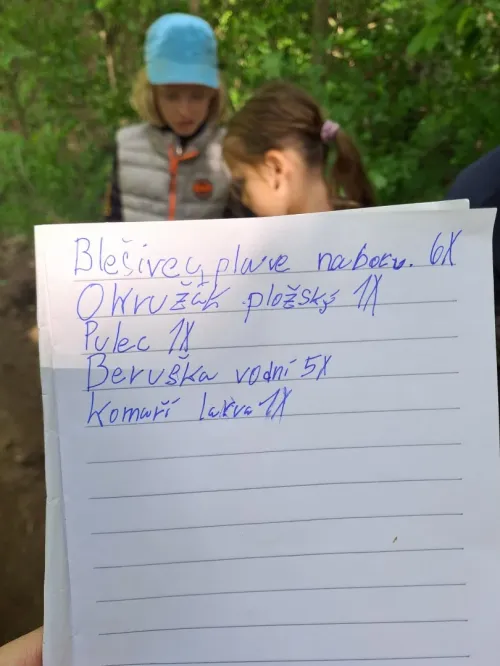 Blešivec, plave naboku. 6X
Okružák pložský 1X
Pulec 1X
Beruška vodní 5X
Komaří larva 1X